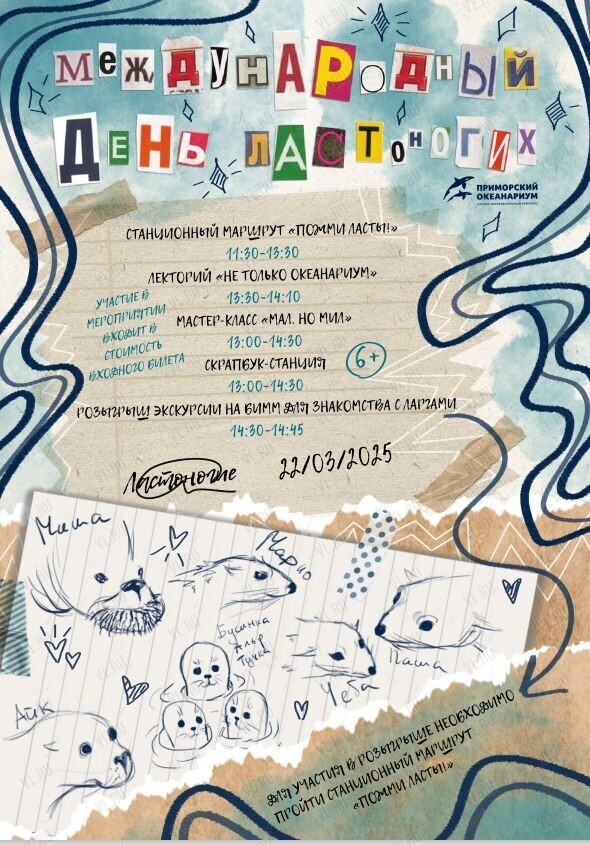 МЕЖДУНАРОДНЫЙ
ДЕНЬ ЛАСТОНОГИХ
ПРИМОРСКИЙ
ОКЕАНАРИУМ
СТАНЦИОННЫЙ МАРШРУТ «ПОЖМИ ЛАСТЫ!»
11:30-13:30
ЛЕКТОРИЙ «НЕ ТОЛЬКО ОКЕАНАРИУМ»
13:30-14:10
МАСТЕР-КЛАСС «МАЛ, НО МИЛ»
13:00-14:30
СКРАПБУК-СТАНЦИЯ
13:00-14:30
РОЗЫГРЫШ ЭКСКУРСИИ НА БИММ ДЛЯ ЗНАКОМСТВА С ЛАРГАМИ
14:30-14:45
УЧАСТИЕ В
МЕРОПРИЯТИИ
ВХОДИТ В
СТОИМОСТЬ
ВХОДНОГО БИЛЕТА
6+
Ластоногие
22/03/2025
Миша
Марио
Бусинка
Альр
Тучка
Чеба
Паша
Айк
ДЛЯ УЧАСТИЯ В РОЗЫГРЫШЕ НЕОБХОДИМО
ПРОЙТИ СТАНЦИОННЫЙ МАРШРУТ
«ПОЖМИ ЛАСТЫ!»